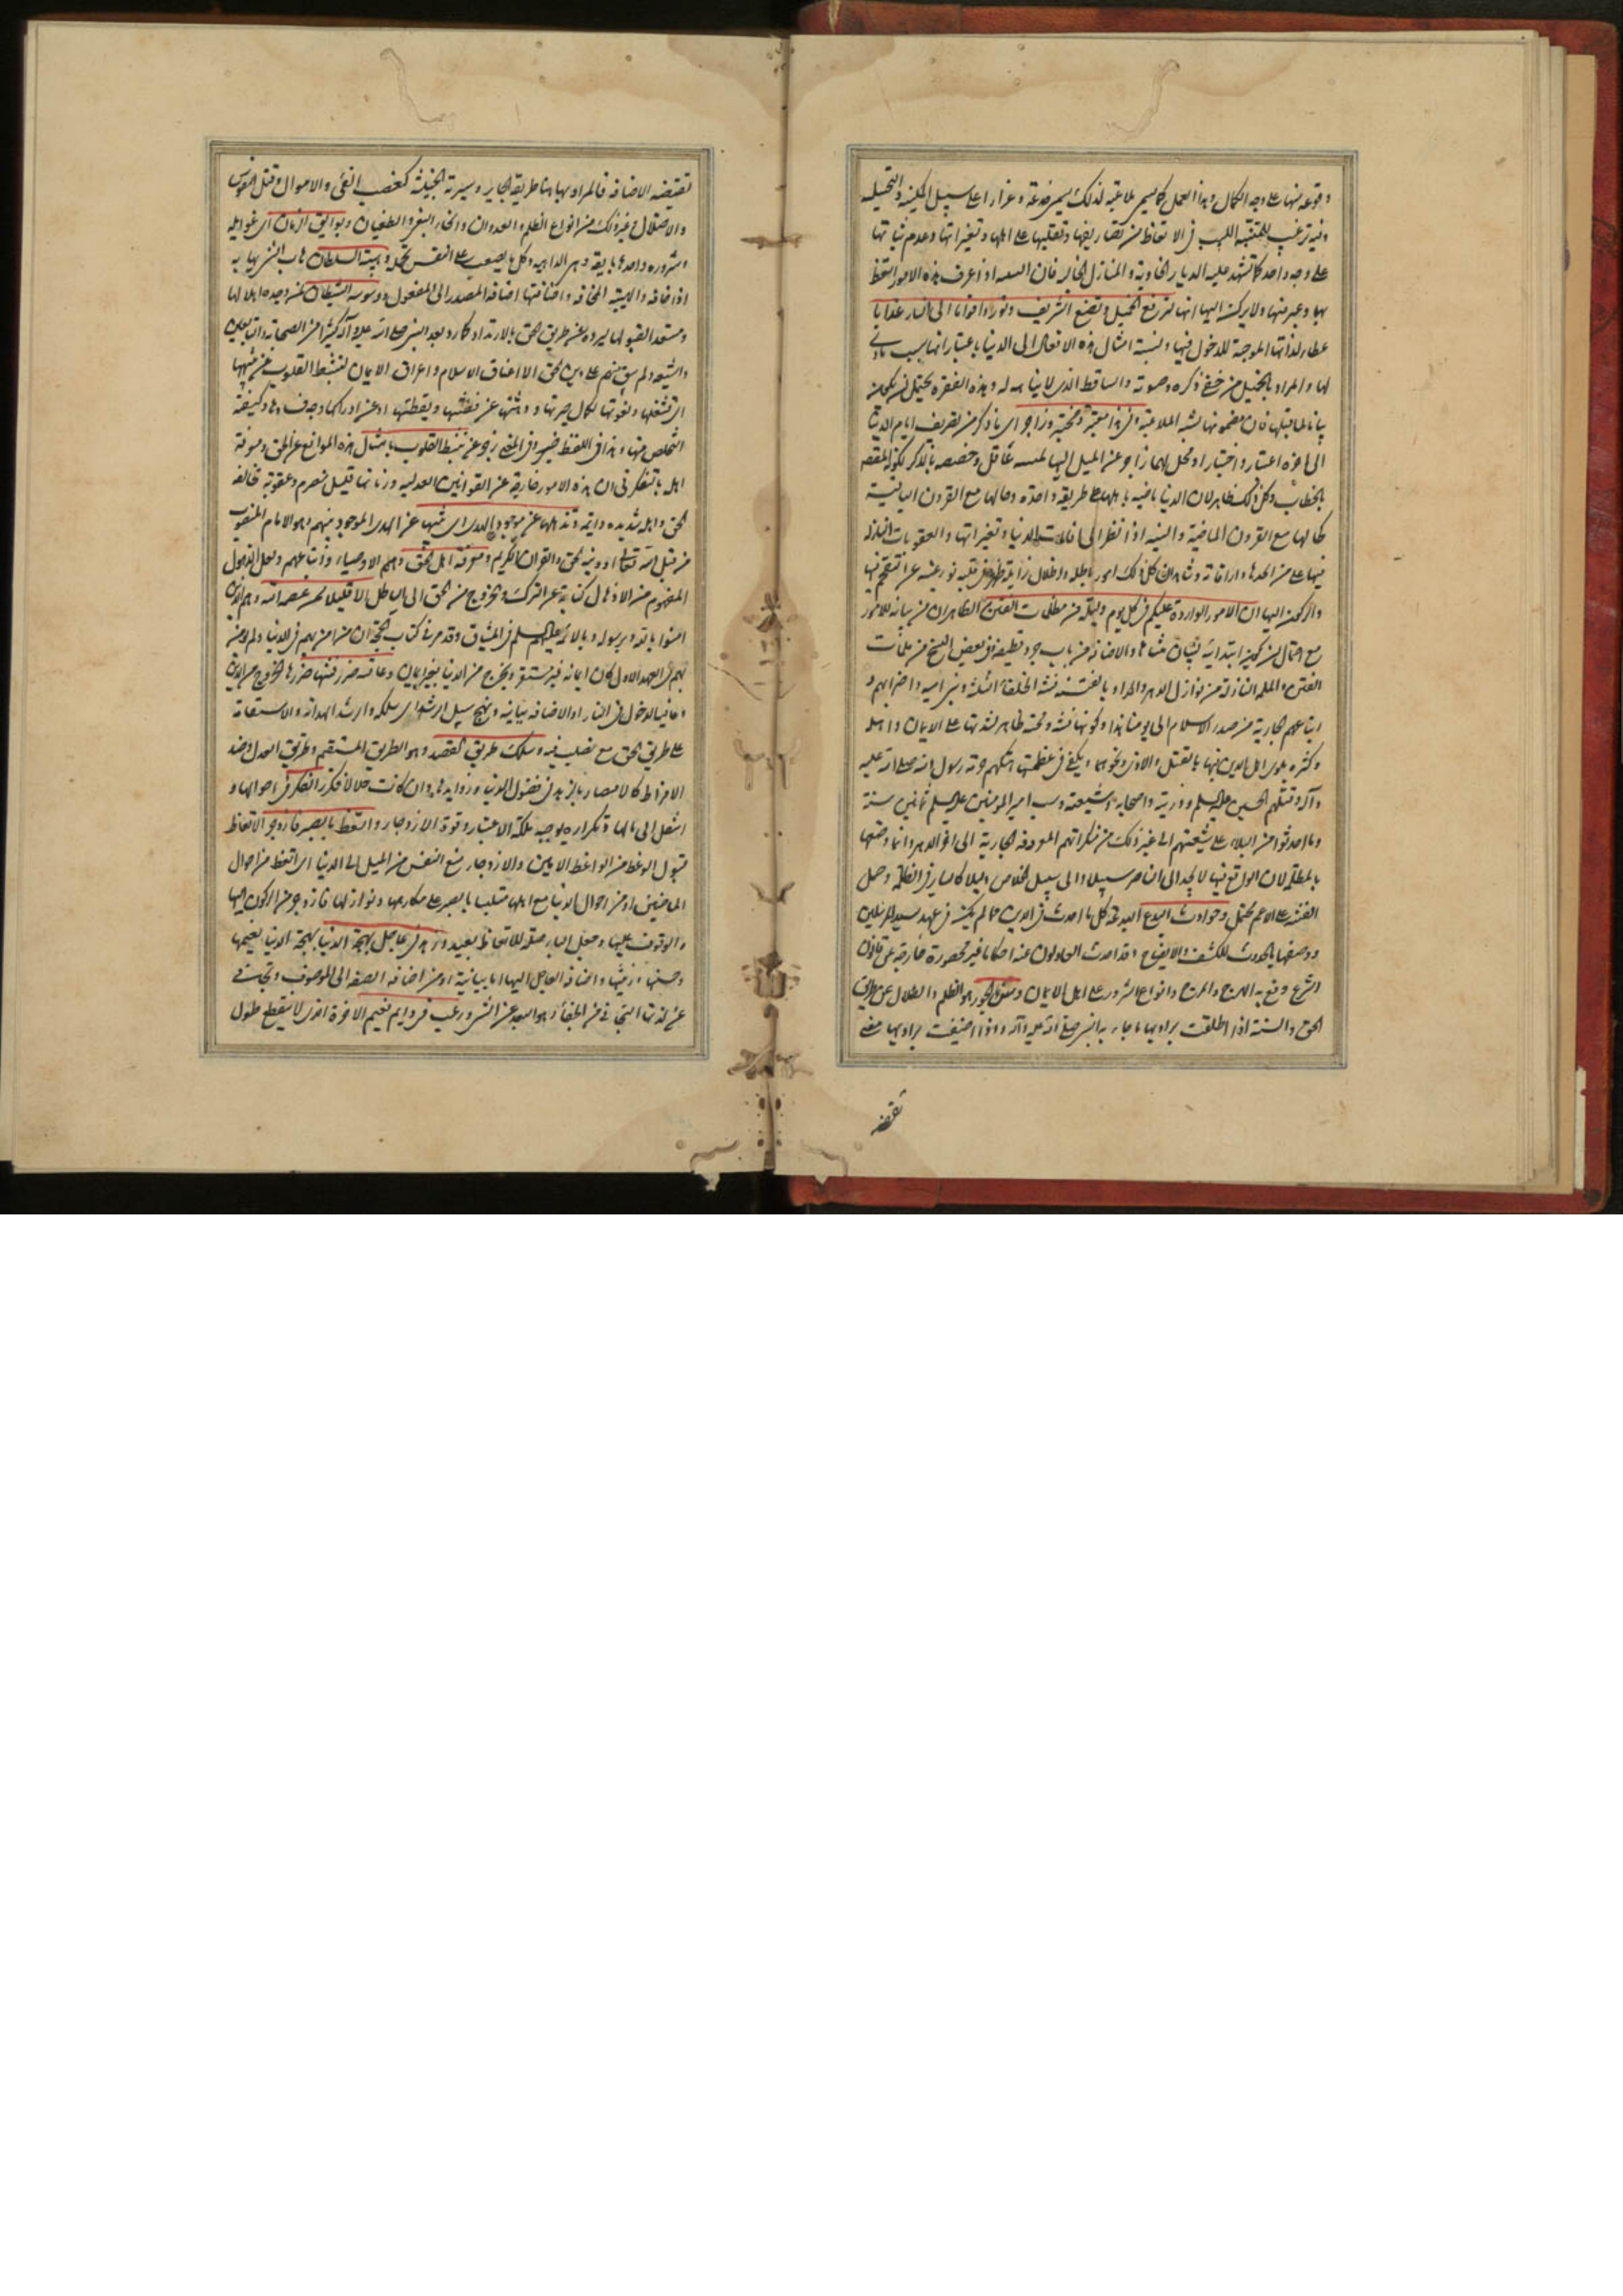 وقوعه منها على وجه الكمال وهذا العمل كما يسمى ملاعبة لذلك يسمى خدعة وغرارا على سبيل المكنية والتخييلية
وفيه ترغيب للمتنبه اللبيب في الاتعاظ من تصاريفها وتقلبها على اهلها وتغيراتها وعدم ثباتها
على وجه واحد كما تشهد عليه الديار الخاوية والمنازل الخالية فان السعيد اذا عرف هذه الامور اتعظ
بها وعبر منها ولا يركن اليها انها لترفع الخميل وتضع الشريف وتورد اقواما الى النار غدا
لذاتها الموجبة للدخول فيها ونسبة امثال هذه الافعال الى الدنيا باعتبار انها سبب مادي
لها والمراد بالخميل من خفي ذكره وصوته والساقط الذي لا نباهة له وهذه الفقرة يحتمل ان يكون
بيانا لما قبلها فان مضمونها يشبه الملاعبة وفي هذا معتبر ومختبر وزاجر اي ما ذكر من تصريف ايام الدنيا
الى اخره اعتبار واختبار او محل لهما زاجر عن الميل اليها لمنتبه عاقل وخصصه بالذكر لكونه المقصود
بالخطاب وكل ذلك ظاهر لان الدنيا ماضية باهلها على طريقة واحدة وحالها مع القرون الباقية
كحالها مع القرون الماضية والسنيه اذا نظر الى الدنيا وتغيراتها والعقوبات النازلة
فيها على من وشاهد ان كل ذلك امور باطلة واظلال زايلة ظهر في قلبه نور يمنعه عن التقحم فيها
والركون اليها ان الامور الواردة عليكم في كل يوم وليلة من مظلمات الفتن الظاهر ان من بيانية للامور
مع احتمال ان يكون ابتدائية والاضافة من باب جرد قطيفة وفي بعض النسخ من ملمات
الفتن والملمة النازلة من نوازل الدهر والمراد بالفتنة فتنة الخلفاء الثلثة وبني امية واضرابهم و
اتباعهم الجارية من صدر الاسلام الى يومنا هذا وكونها فتنة ومحنة ظاهر لشدتها على الايمان واهله
وكثرة بلوى اهل الدين فيها بالقتل والاذى ونحوهما ويكفي في عظمتها هتكهم حرمة رسول الله صلى الله عليه
وآله وقتلهم الحسين عليه السلم وذريته واصحابه وشيعته وسب امير المؤمنين عليه السلم ثمانين سنة
وما احدثوا من البلاء على شيعتهم الى غير ذلك من منكراتهم المعروفة الجارية الى اخر الدهر وانما وصفها
بالمظلمة لان الواقع فيها لا يجد الى الناصر سبيلا والى سبيل الخلاص دليلا كالساير في الظلمة وحمل
الفتنة على الاعم محتمل وحوادث البدع البدعة كل ما احدث في الدين مما لم يكن في عهد سيد المرسلين
ووصفها بالحدوث للكشف والايضاح وقد احدث العادلون عنه احكاما غير محصورة خارجة عن قانون
الشرع وقع به الهرج والمرج وانواع الشرور على اهل الايمان وسنن الجور هو الظلم والضلال عن طريق
الحق والسنة اذا اطلقت يراد بها ما جاء به النبي صلى الله عليه وآله واذا اضيفت يراد بها معنى
تقتضيه
تقتضيه الاضافة فالمراد بها هنا طريقة الجاير وسيرته الخبيثة كغصب الفيء والاموال وقتل النفوس
والاضلال وغير ذلك من انواع الظلم والعدوان وانحاء البغي والطغيان وبوائق الزمان اي غوايله
وشروره واحدها بايقة وهي الداهية وكل ما يصعب على النفس تحمله وهيبة السلطان هاب الشيء يهابه
اذا خافه والهيبة المخافة واضافتها اضافة المصدر الى المفعول ووسوسة الشيطان لمن وجده اهلا لها
ومستعدا لقبولها ليرده عن طريق الحق بالارتداد كما رد بعد النبي صلى الله عليه وآله كثيرا من الصحابة والتابعين
والشيعة ولم يبق منهم على دين الحق الا اعناق الاسلام واعراق الايمان لتثبط القلوب عن تنبهها
اي تشغلها وتعوقها لكمال حيرتها ودهشتها عن فطنتها ويقظتها او عن ادراكها وكيفية
التخلص منها وهذا في اللفظ خبر وفي المعنى زجر عن تثبط القلوب بامثال هذه الموانع عن الحق ومعرفة
اهله بالتفكر في ان هذه الامور خارجة عن القوانين العدلية وزمانها قليل منصرم وعقوبة مخالفة
الحق واهله شديدة دايمة وتذهلها عن موجود الهدى اي تثنيها عن الهدى الموجود بينهم وهو الامام المنصوب
من قبل الله تعالى او دينه الحق والقران الكريم ومعرفة اهل الحق وهم الاوصياء واتباعهم ولعل الذهول
المفهوم من الاذهال كناية عن الترك والخروج من الحق الى الباطل الا قليلا ممن عصم الله وهم الذين
امنوا بالله وبرسوله وبالائمة عليهم السلم في الميثاق وقد مر في كتاب الحجة ان من امن بهم في الدنيا ولم يؤمن
بهم في العهد الاول كان ايمانه غير مستقر ويخرج من الدنيا بغير ايمان وعاقبة ضرر فتنها ضررها الخروج من الدين
وعاقبة الدخول في النار او الاضافة بيانية ونهج سبيل الرشد اي سلكه وارشد الهداة والاستقامة
على طريق الحق مع تصلب فيه وسلك طريق القصد وهو الطريق المستقيم وطريق العدل وضد
الافراط كالاقتصاد بالزهد في فضول الدنيا وزوايدها وان كانت حلالا فكرر الفكر في احوالها و
انتقل الى مالها وتكراره يوجب ملكة الاعتبار وقوة الازدجار واتعظ بالصبر فازدجر الاتعاظ
قبول الوعظ من الواعظ الامين والازدجار منع النفس من الميل الى الدنيا اي اتعظ من احوال
الماضين او من احوال الدنيا مع اهلها متلبسا بالصبر على مكارهها ونوازلها فازدجر من الركون اليها
والوقوف عليها وجعل الباء صلة للاتعاظ بعيد وزهد في عاجل بهجة الدنيا بهجة الدنيا نعيمها
وحسنها وزينتها واضافة العاجل اليها اما بيانية او من اضافة الصفة الى الموصوف وتجافى
عن لذتها التجافي من الجفاء وهو البعد عن الشيء ورغب في دايم نعيم الاخرة الذي لا ينقطع طول